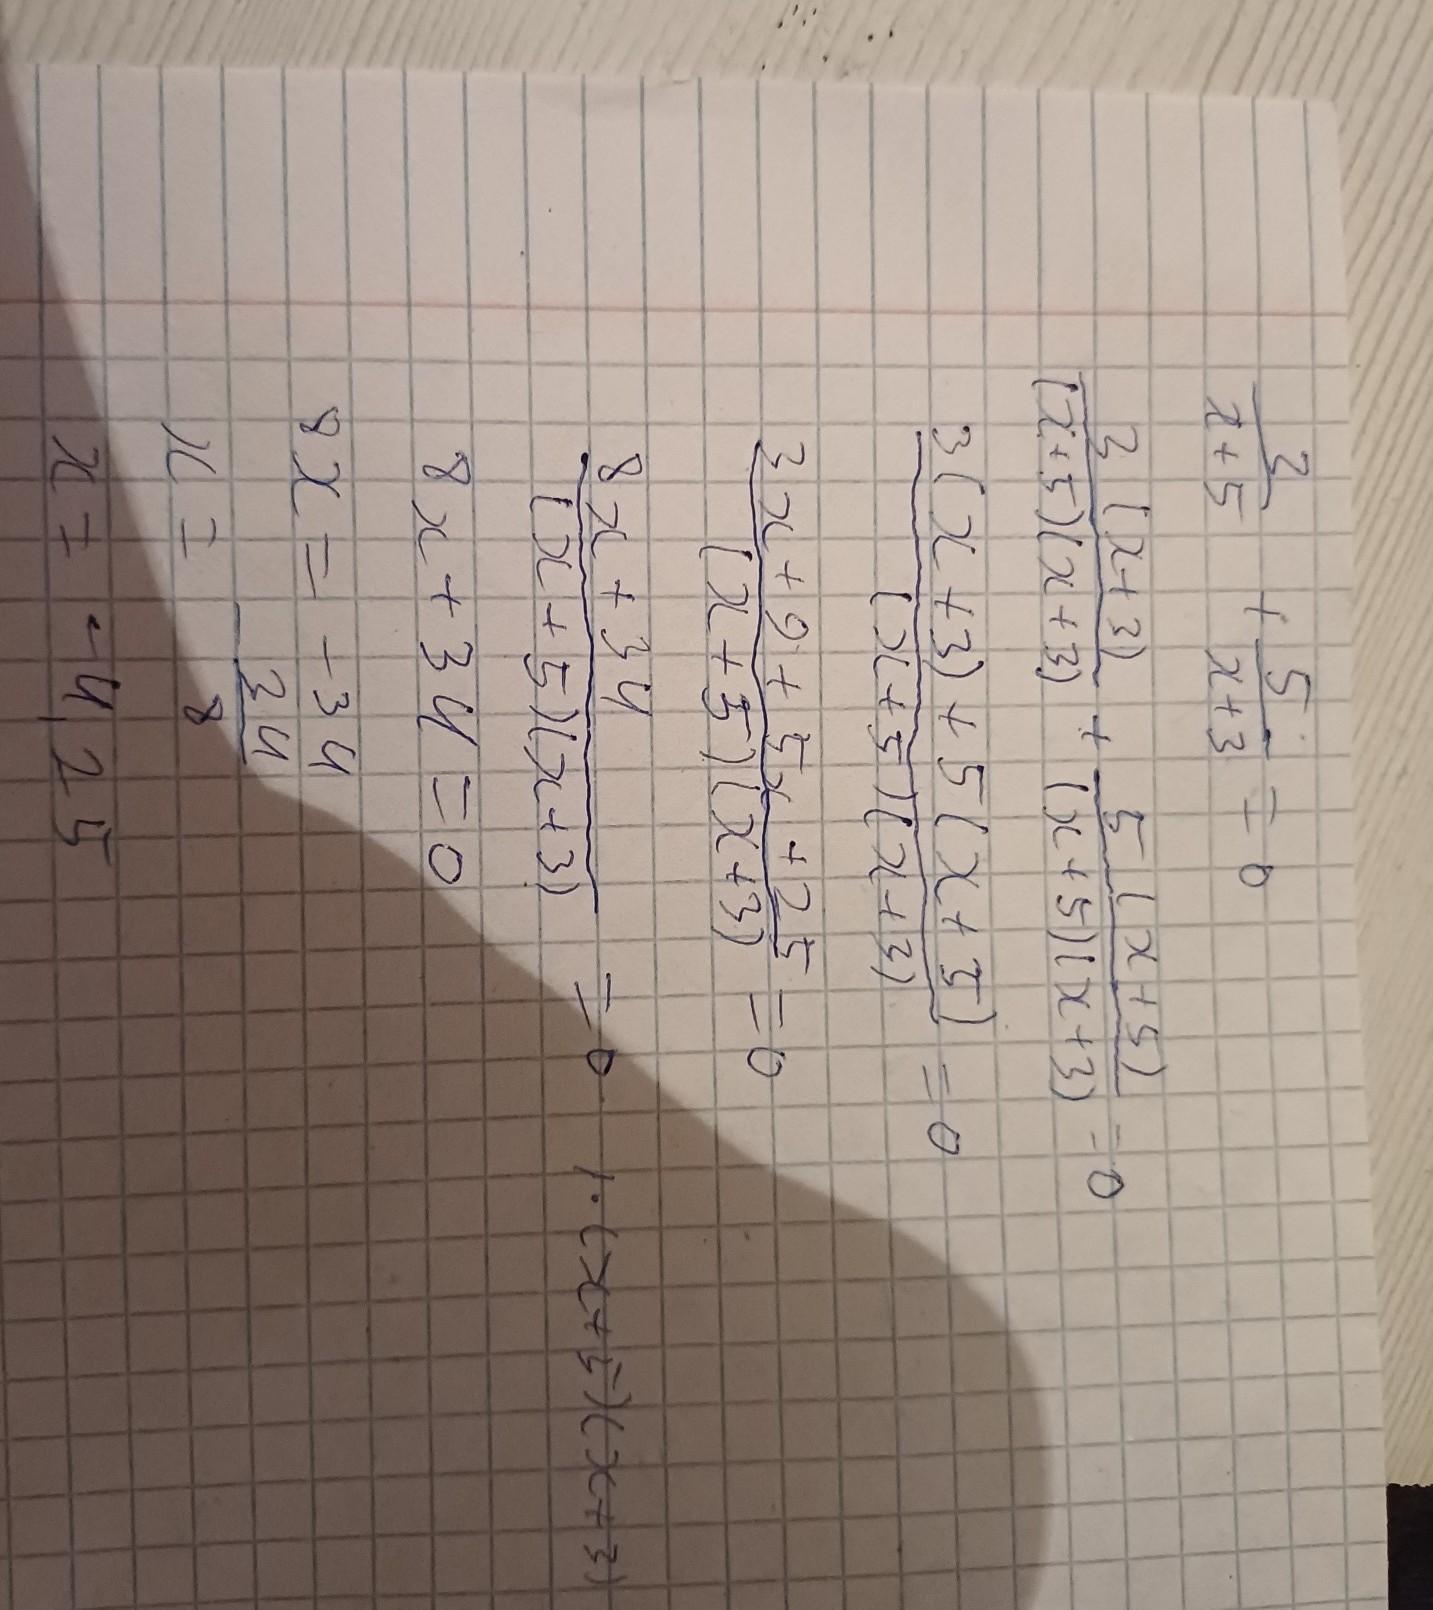 3/(x+5) + 5/(x+3) = 0
3(x+3)/((x+5)(x+3)) + 5(x+5)/((x+5)(x+3)) = 0
(3(x+3)+5(x+5))/((x+5)(x+3)) = 0
(3x+9+5x+25)/((x+5)(x+3)) = 0
(8x+34)/((x+5)(x+3)) = 0 /·(x+5)(x+3)
8x+34=0
8x=-34
x = -34/8
x = -4,25